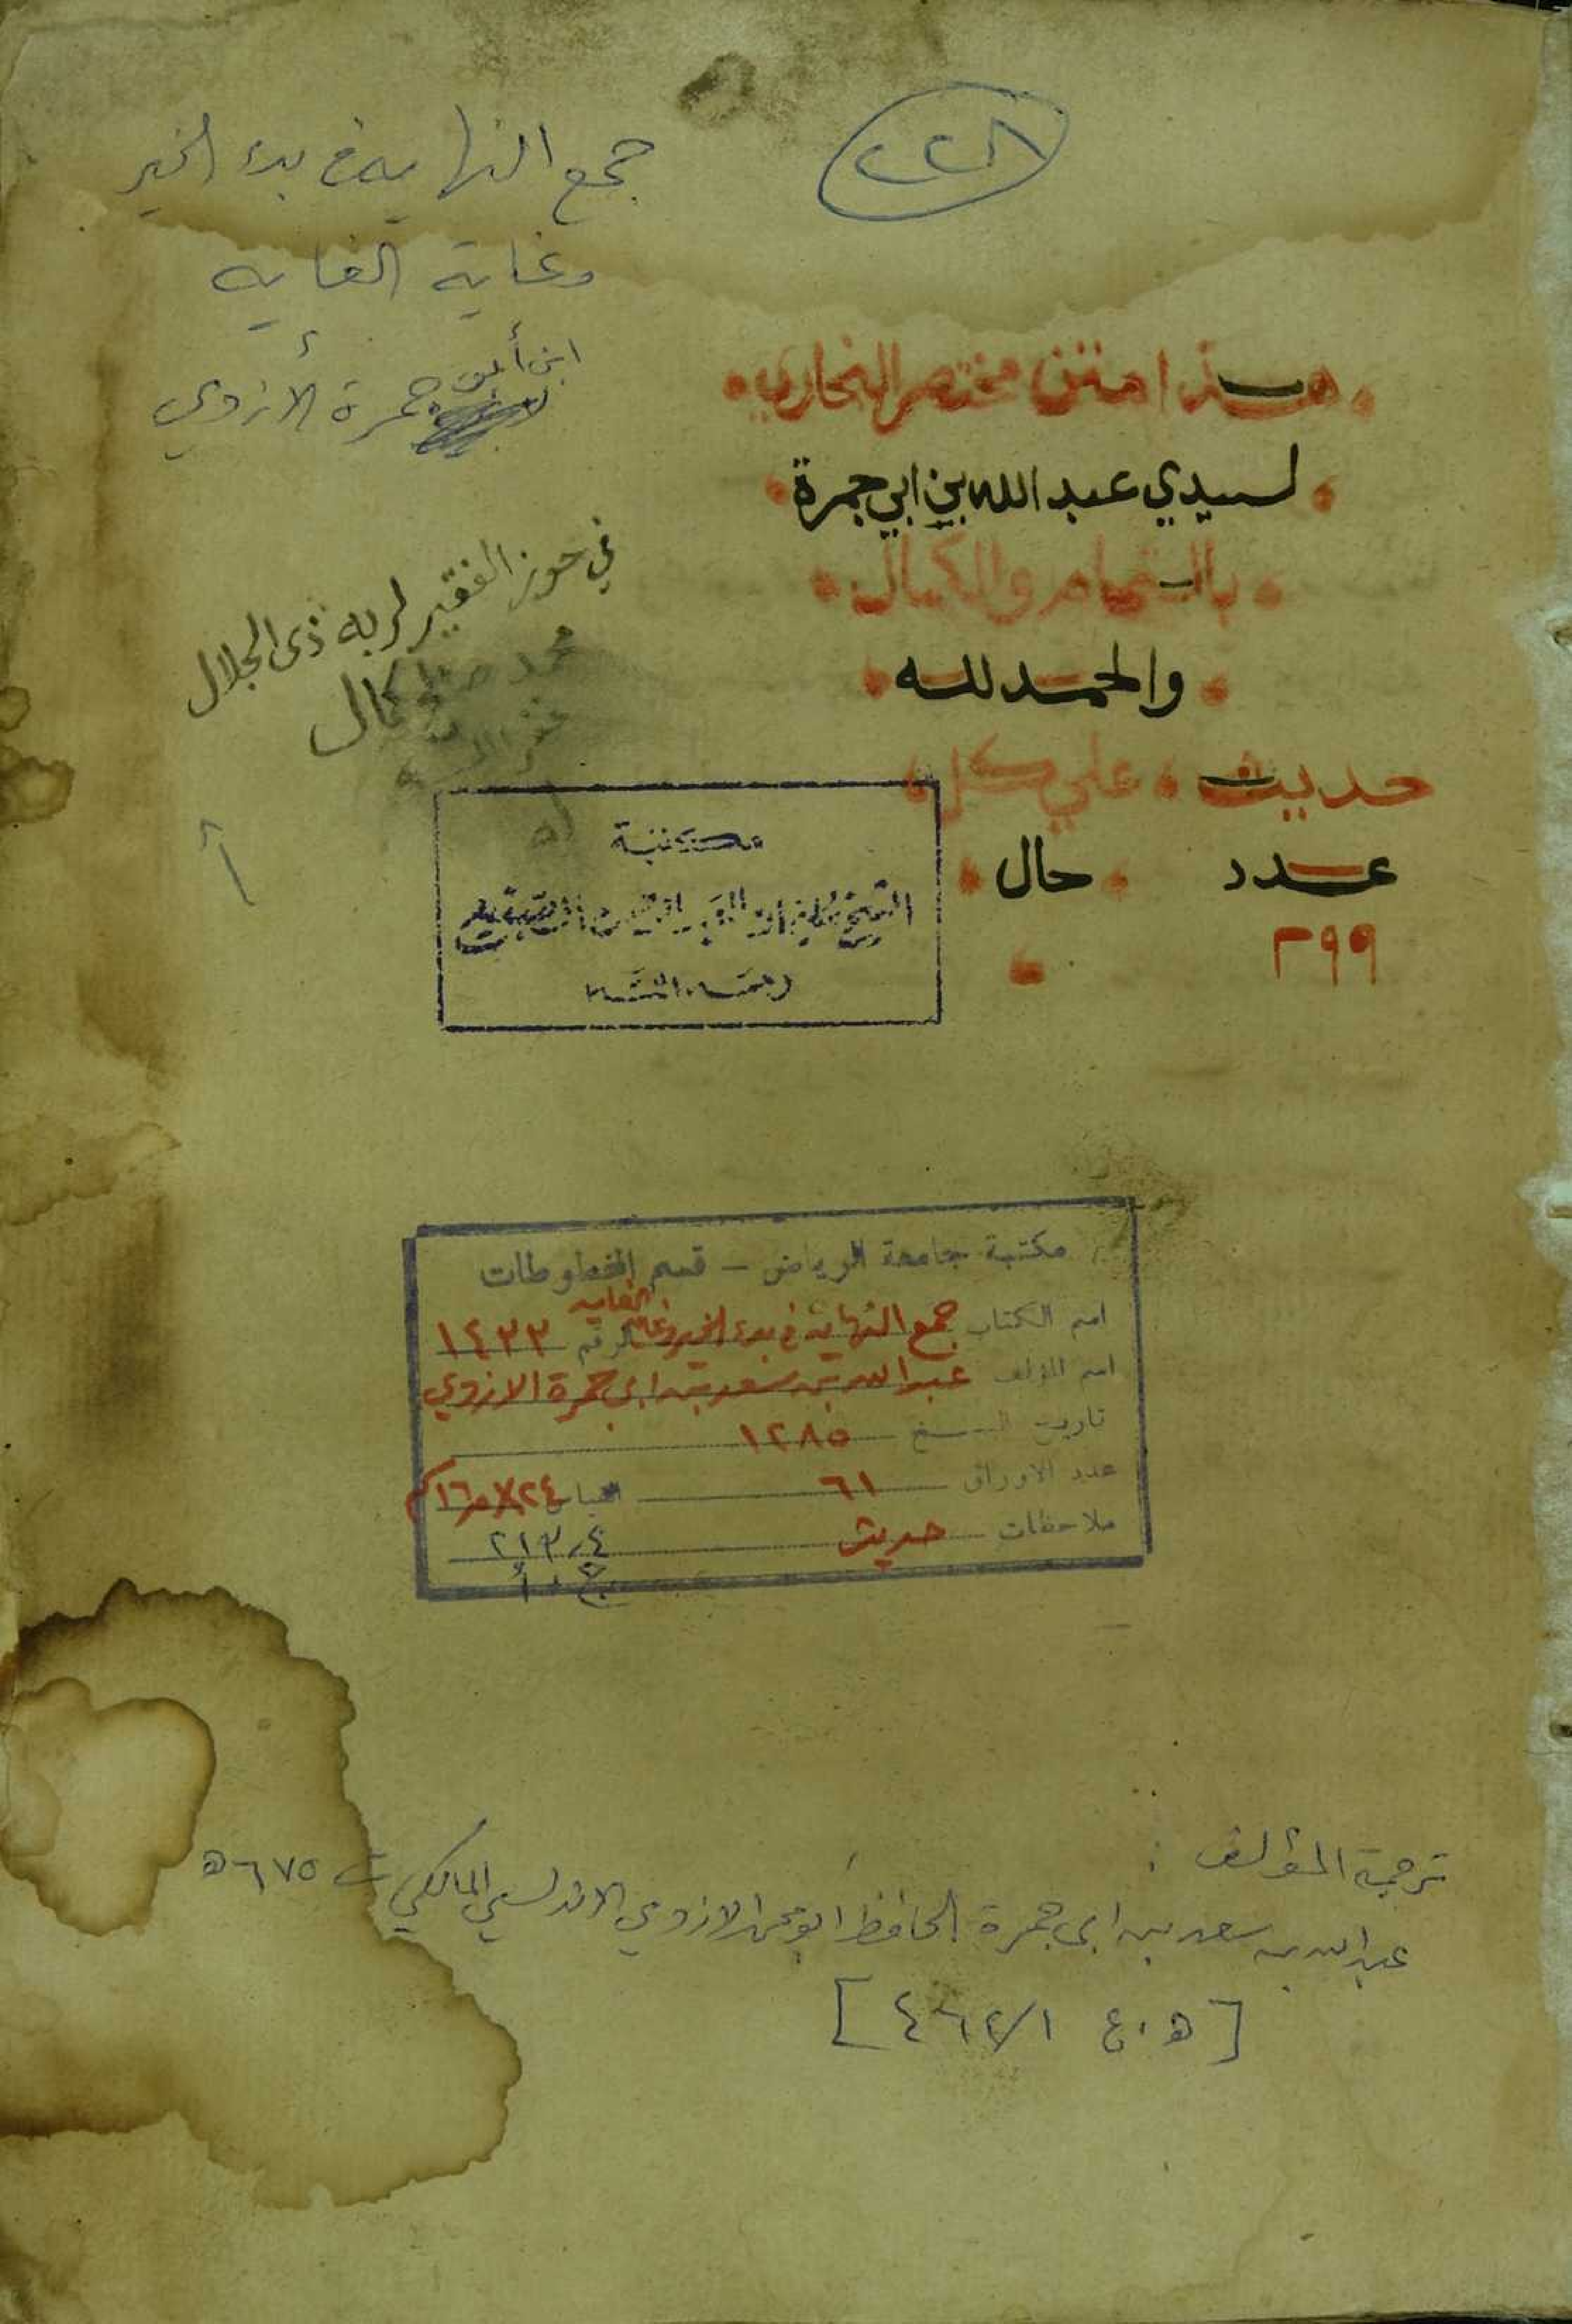 ٢٢٨
جمع النهاية في بدء الخير
وغاية الغايه
ابن أبي
حمرة الأزدي
هذا متن مختصر البخاري
لسيدي عبد الله بن ابي جمرة
بالتمام والكمال
والحمد لله
حديث علي كل
عدد حال
٢٩٩
في حوز الفقير لربه ذى الجلال
محمد كمال
أ
مكتبة
الشيخ
رحمه الله
مكتبة جامعة الرياض - قسم المخطوطات
اسم الكتاب جمع النهاية في بدء الخير وغاية الغايه الرقم ١٤٣٣
اسم المؤلف عبد الله بن سعد بن ابي جمرة الازدي
تاريخ النسخ ١٢٨٥
عدد الاوراق ٦١ القياس ٢٤×١٦٫٥
ملاحظات حديث ٢١٣٫٤
ج . أ
ترجمة المؤلف :
عبد الله بن سعد بن ابي جمرة الحافظ ابو محمد الازدي الاندلسي المالكي ت ٦٧٥ هـ
[ هـ . ع ٤٦٢/١ ]